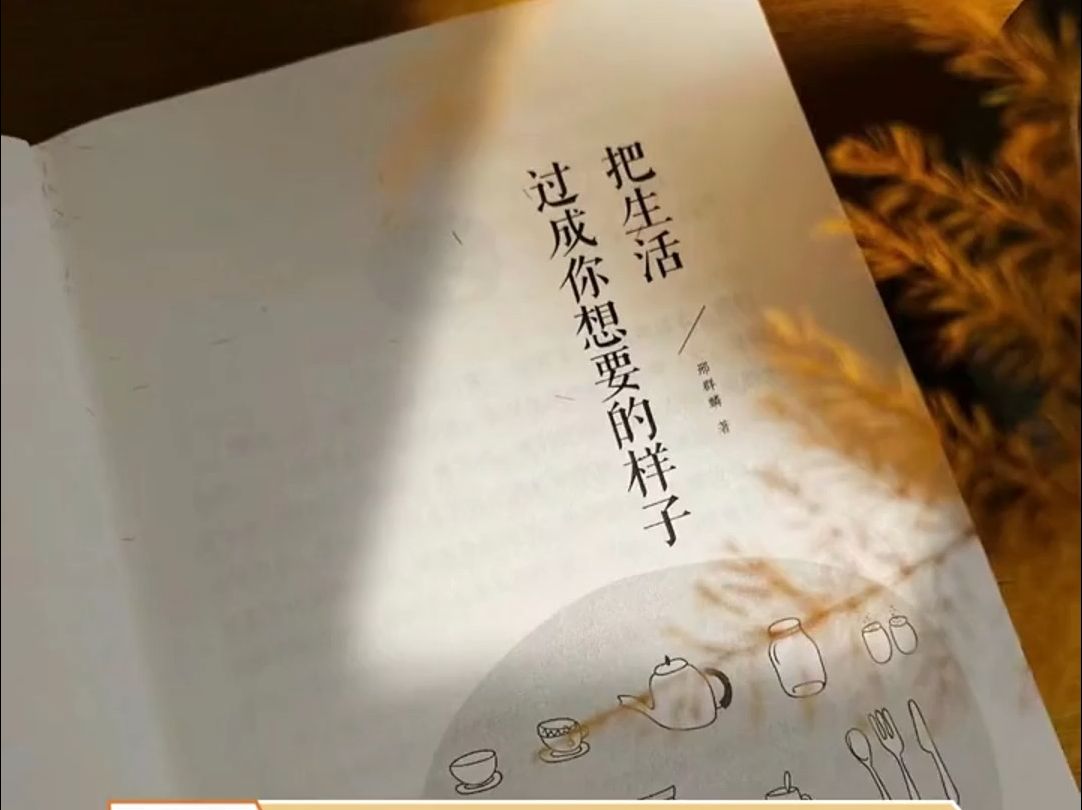 把生活
过成你想要的样子
邢群麟 著